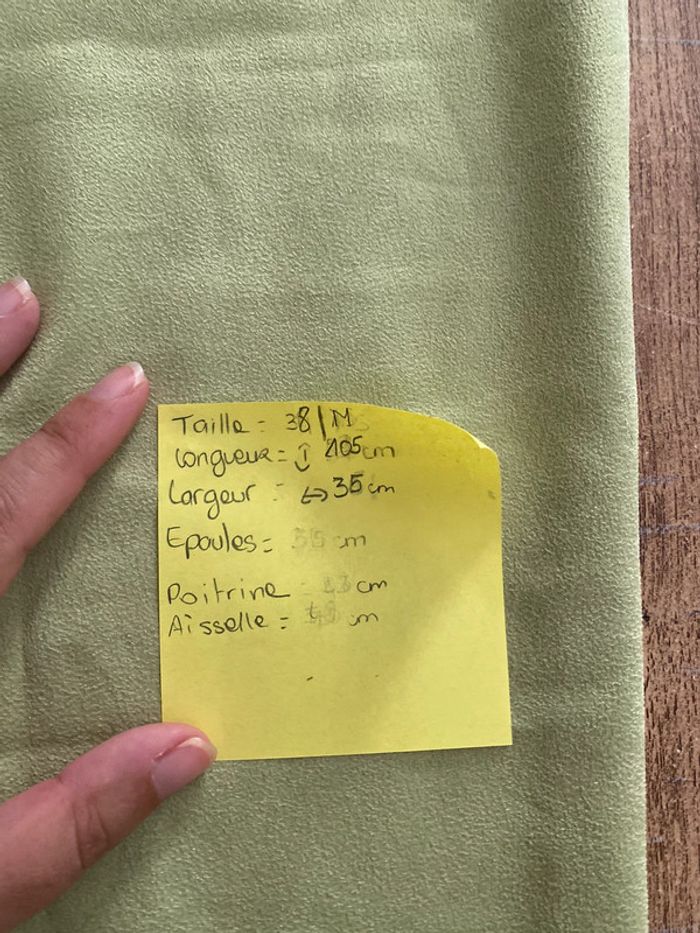 Taille = 38 | M
Longueur = ↕ 105 cm
Largeur = ↔ 35 cm
Epaules = cm
Poitrine = cm
Aisselle = cm